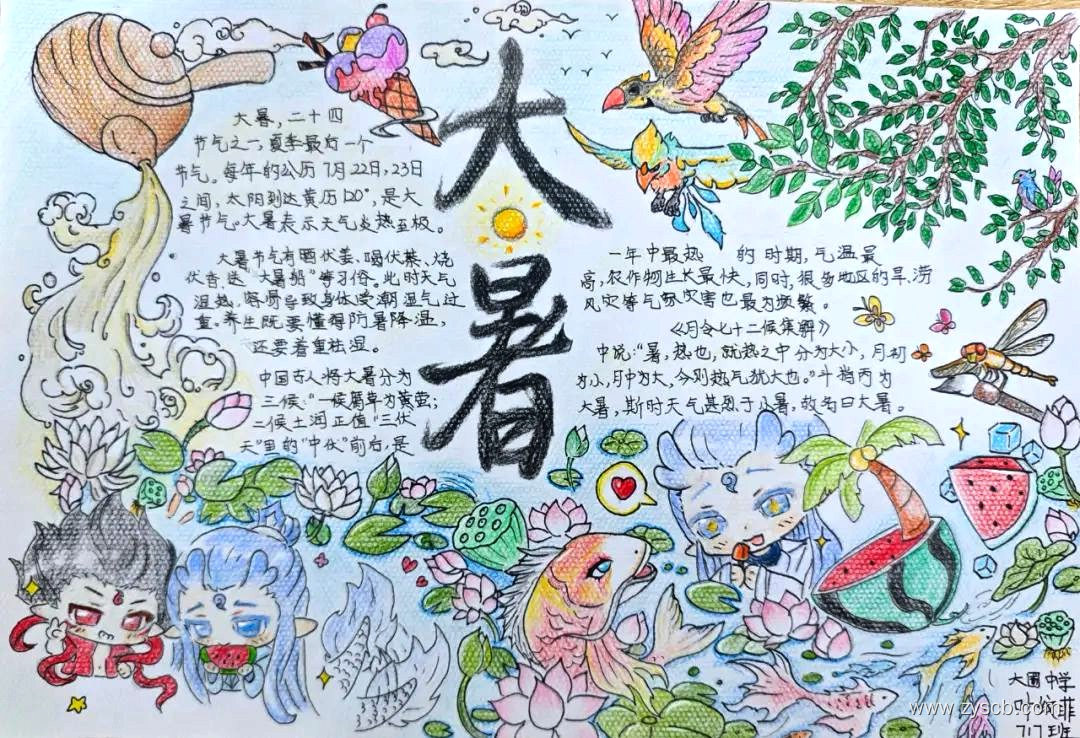 大暑
大暑，二十四
节气之一，夏季最后一个
节气。每年的公历7月22日，23日
之间，太阳到达黄历120°，是大
暑节气。大暑表示天气炎热至极。
大暑节气有晒伏姜、喝伏茶、烧
伏香、送“大暑船”等习俗。此时天气
湿热，容易导致身体受潮湿气过
重。养生既要懂得防暑降温，
还要着重祛湿。
中国古人将大暑分为
三候：“一候腐草为萤；
二候土润 正值“三伏
天”里的“中伏”前后，是
一年中最热 的 时期，气温最
高，农作物生长最快，同时，很多地区的旱、涝
风灾等气象灾害也最为频繁。
《月令七十二候集解》
中说：“暑，热也，就热之中分为大小，月初
为小，月中为大，今则热气犹大也。”斗指丙为
大暑，斯时天气甚烈于小暑，故名曰大暑。
大圃中学
叶 菲
717班
www.zyscb.com